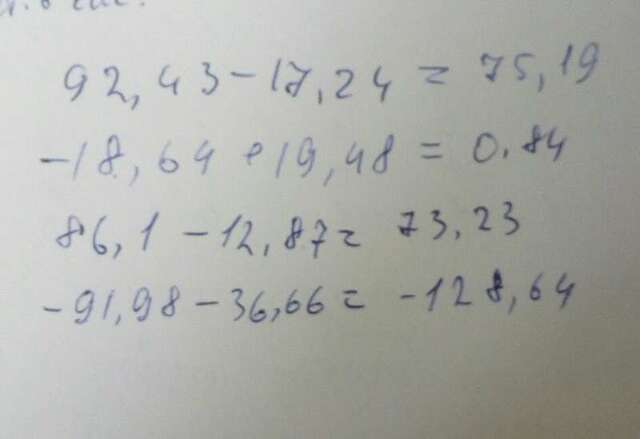 92,43-17,24 = 75,19
-18,64+19,48 = 0.84
86,1-12,87= 73,23
-91,98-36,66= -128,64